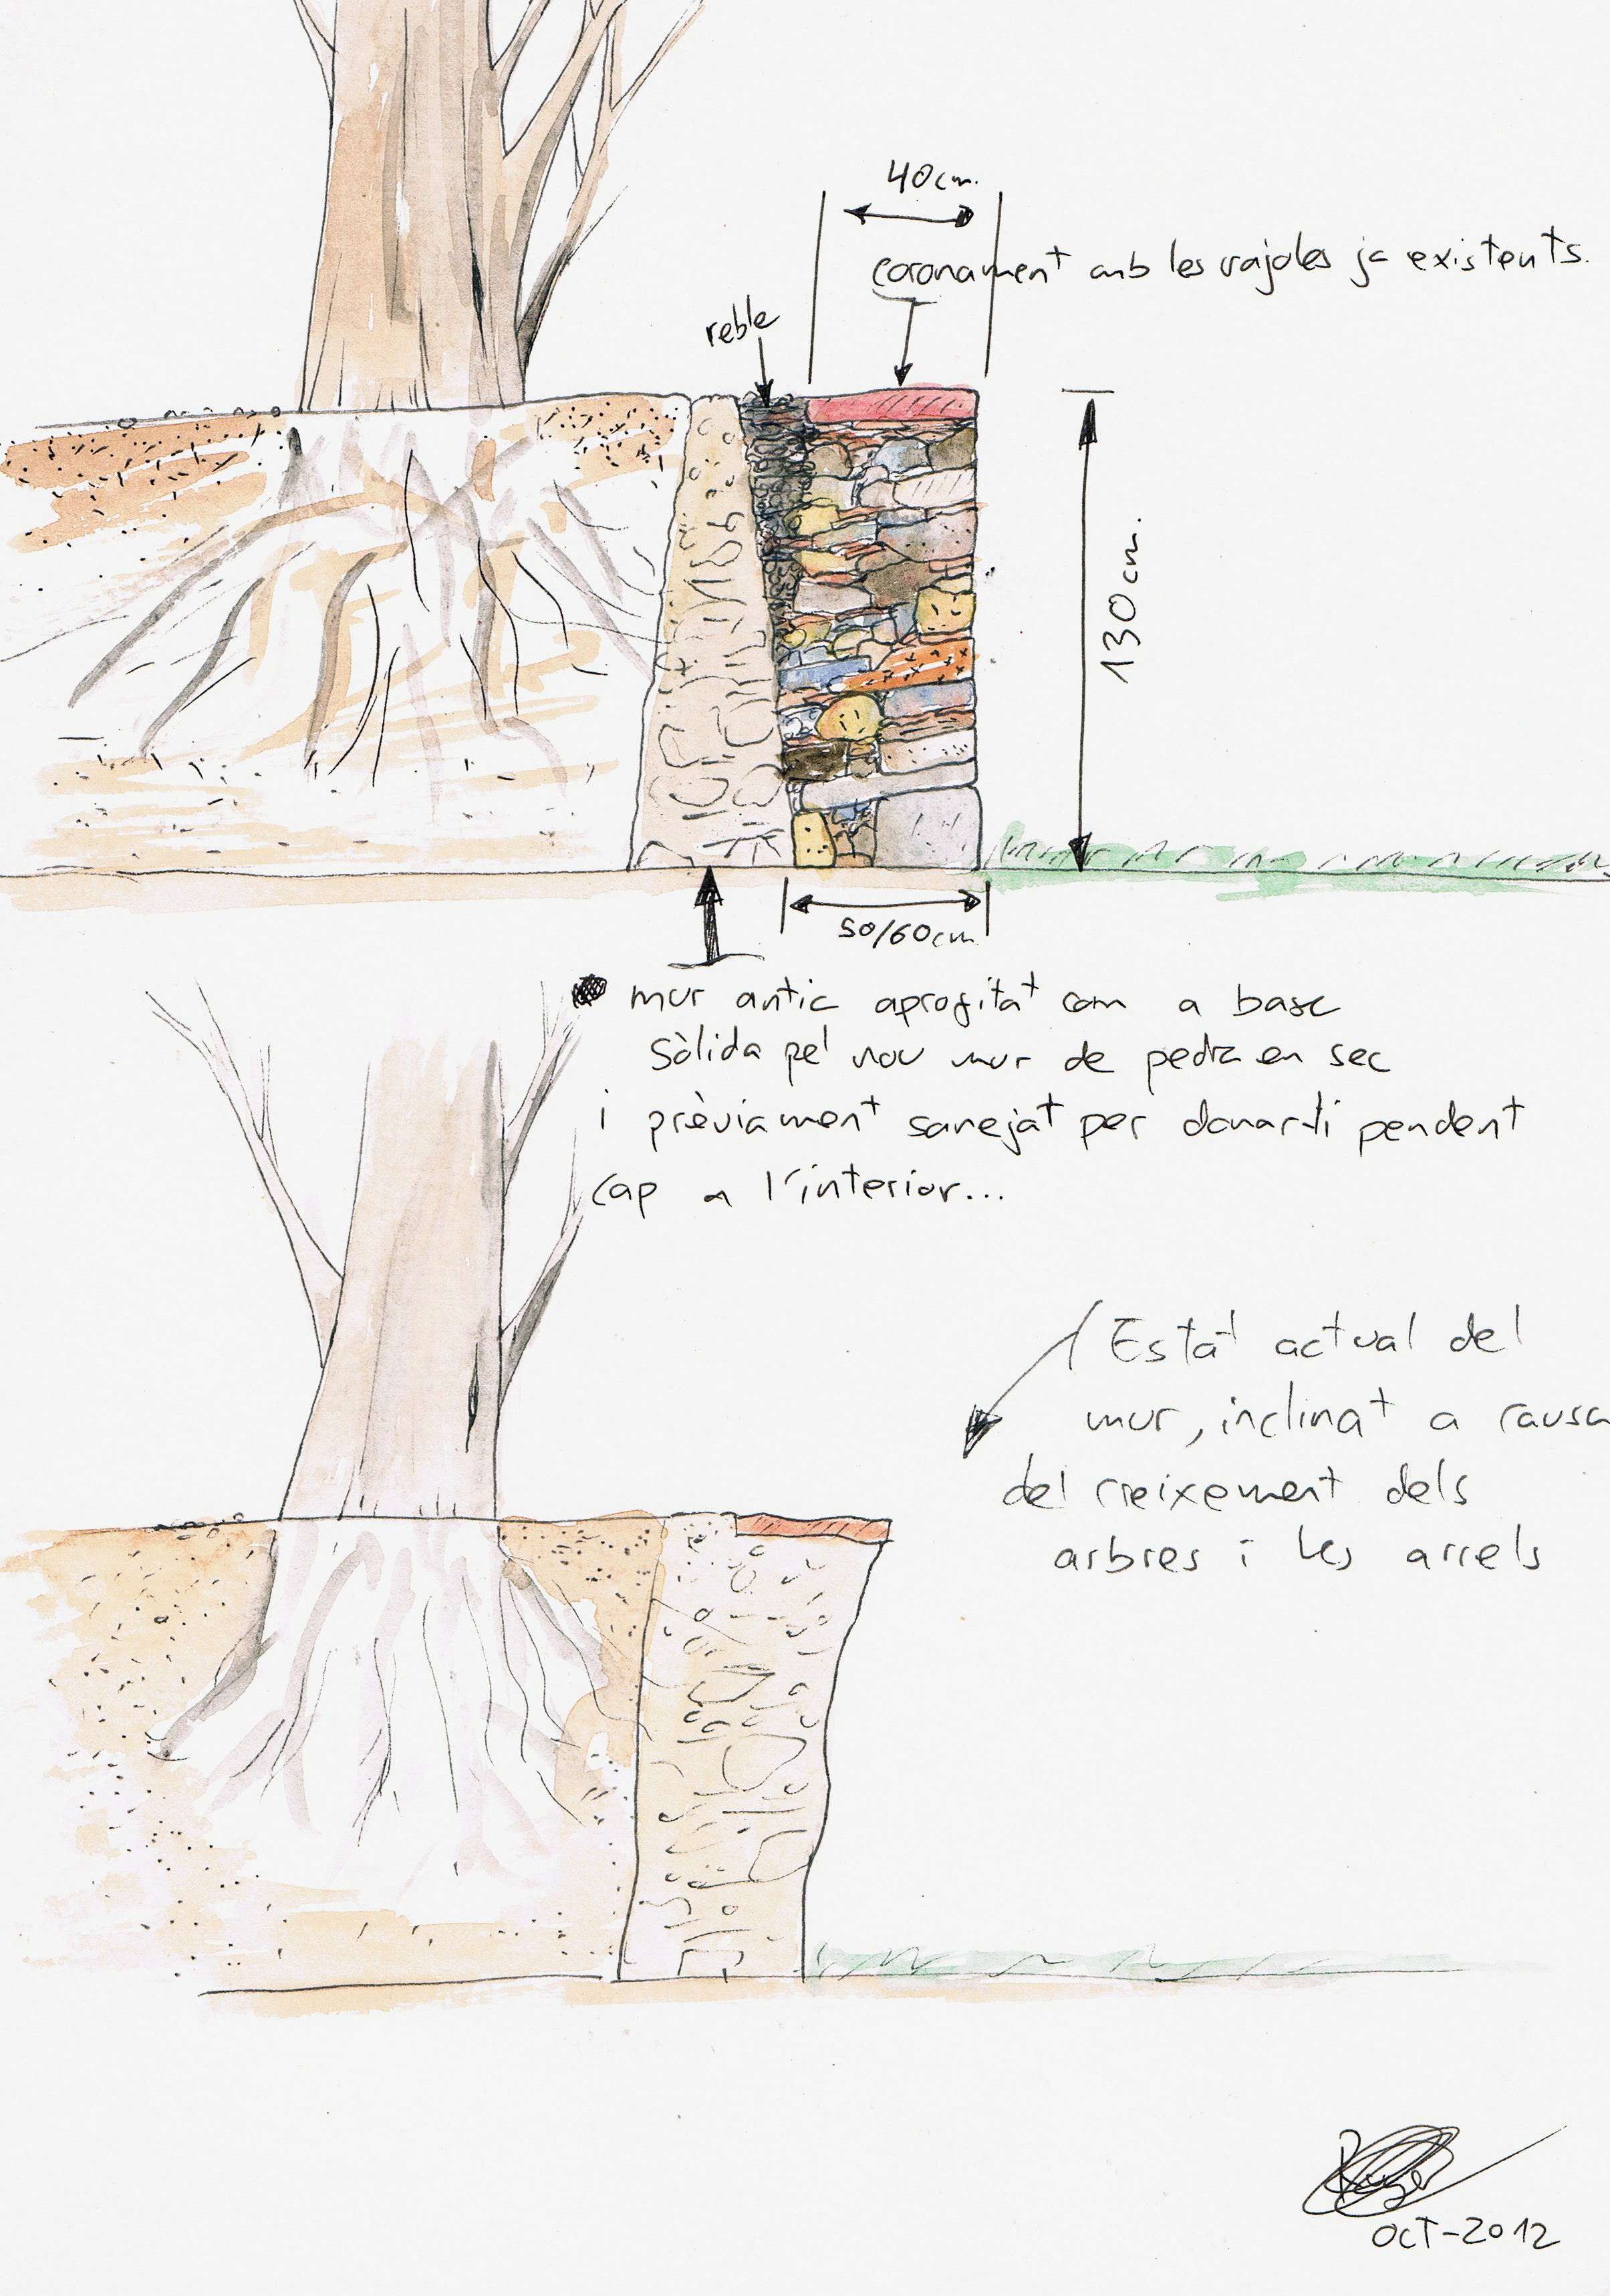 40cm.
coronament amb les rajoles ja existents.
reble
130cm.
50/60cm
mur antic aprofitat com a base
sòlida pel nou mur de pedra en sec
i prèviament sanejat per donar-li pendent
cap a l'interior...
Estat actual del
mur, inclinat a causa
del creixement dels
arbres i les arrels
Roger
OCT-2012